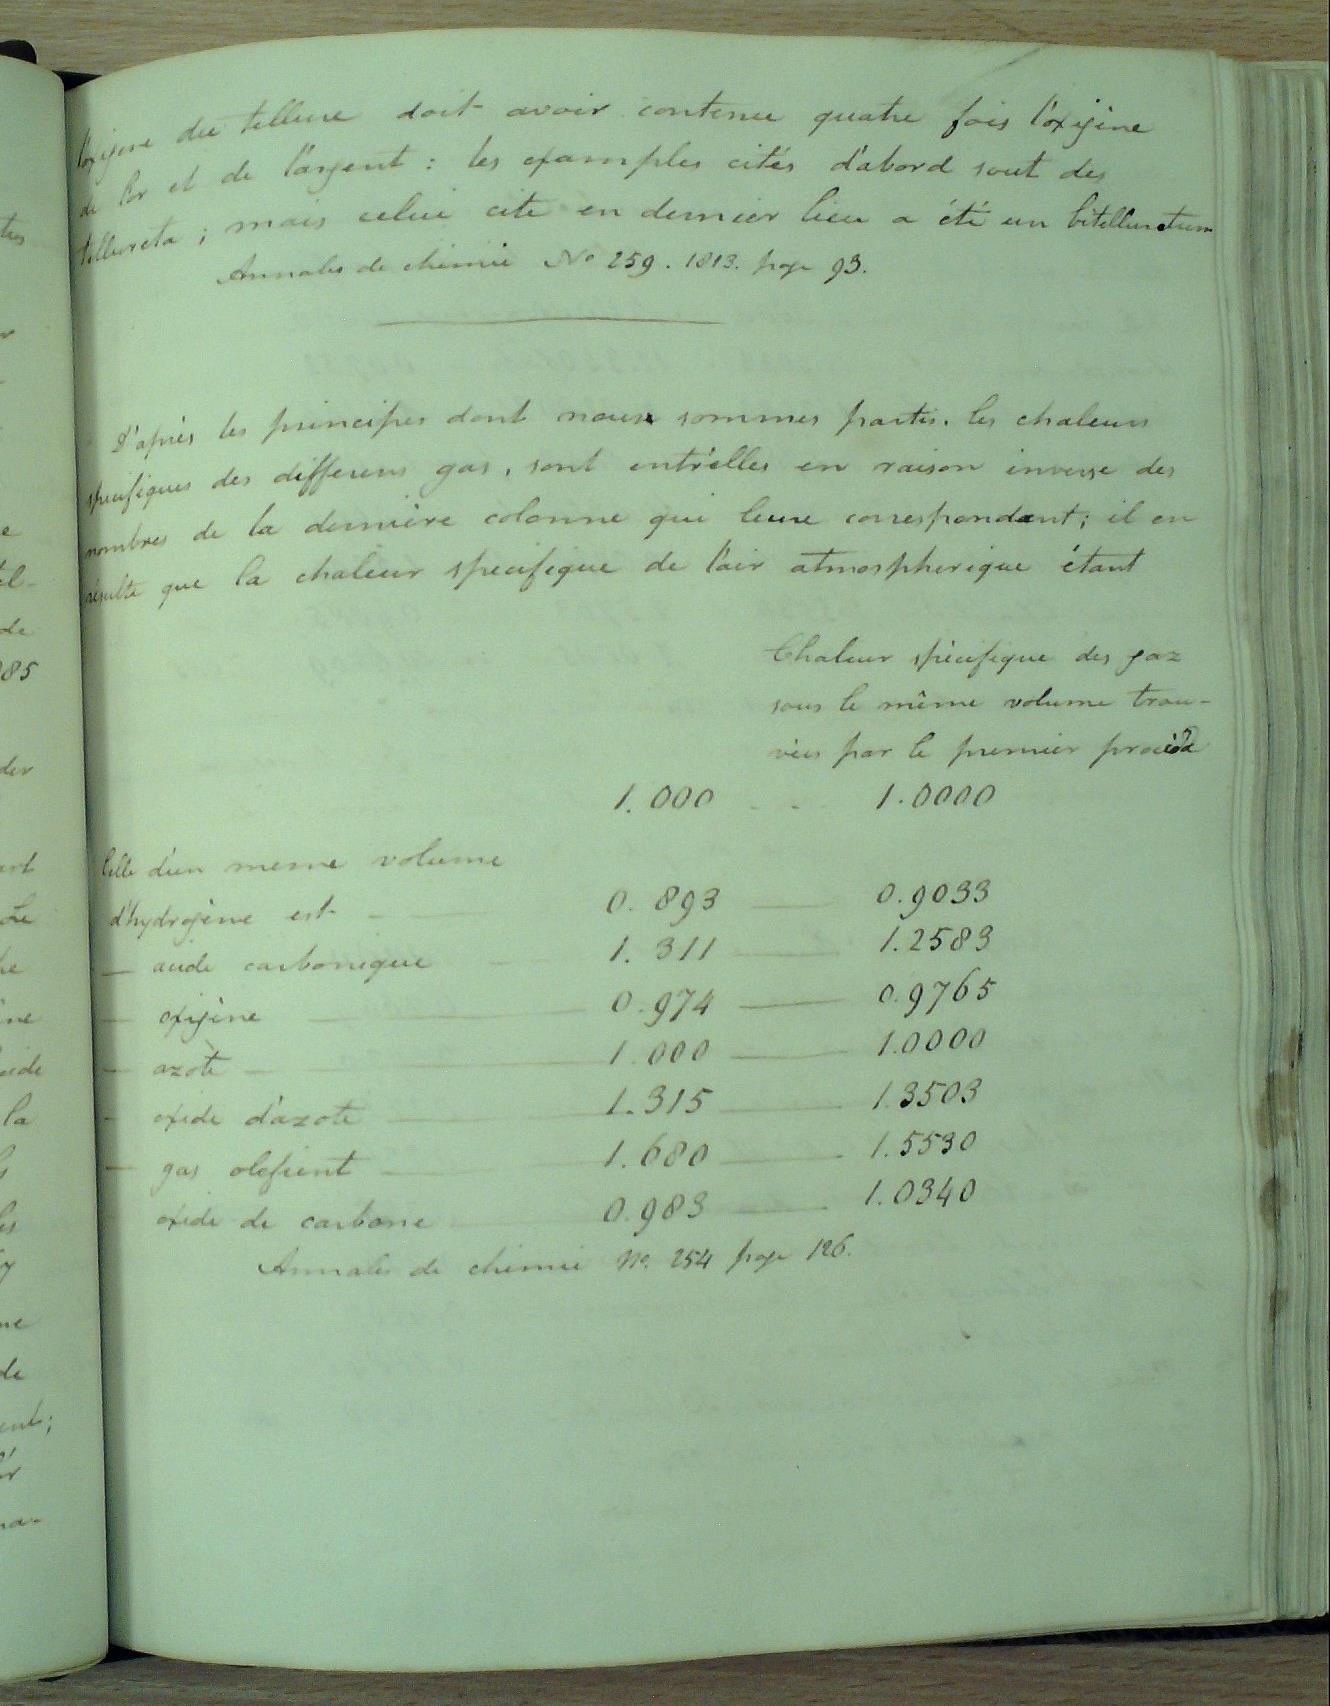 l'oxigène du tellure doit avoir contenu quatre fois l'oxigène
de l'or et de l'argent : les examples cités d'abord sont des
tellureta ; mais celui cité en dernier lieu a été un bitelluretum
Annales de chimie No 259. 1813. page 93.
D'après les principes dont nous sommes partis. les chaleurs
specifiques des differens gas, sont entr'elles en raison inverse des
nombres de la dernière colonne qui leur correspondent; il en
résulte que la chaleur specifique de l'air atmospherique étant
Chaleur spécifique des gaz
sous le même volume trou-
vées par le premier procédé
1.000 - - 1.0000
Celle d'un meme volume
d'hydrogène est - — 0.893 — 0.9033
— acide carbonique - — 1.311 — 1.2583
— oxigène — 0.974 — 0.9765
— azote — 1.000 — 1.0000
- oxide d'azote — 1.315 — 1.3503
— gas olefient — 1.680 — 1.5530
oxide de carbone — 0.983 — 1.0340
Annales de chimie No. 254 page 126.
tes
e
el-
de
985
der
ant
Le
he
ine
cide
la
les
me
de
ent;
na-